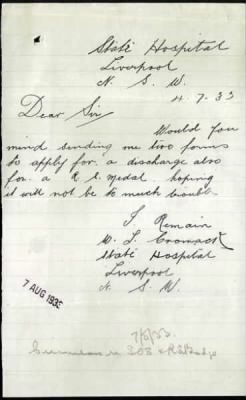 State Hospital
Liverpool
N. S. W.
4.7.33
Dear Sir
Would you
mind sending me two forms
to apply for a discharge also
for a R S Medal, hoping
it will not be to much trouble
I Remain
W. L. Cromack
State Hospital
Liverpool
N. S. W.
7 AUG 193
7/8/33.